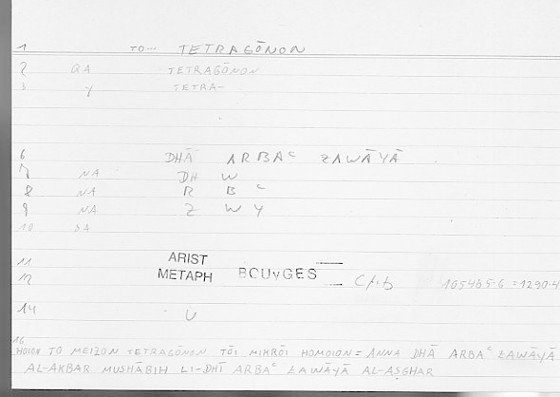 1 TO... TETRAGŌNON
2 GA TETRAGŌNON
3 Y TETRA-
6 DHĀ ARBAᶜ ZAWĀYĀ
7 NA DH W
8 NA R B ᶜ
9 NA Z W Y
10 SA
11 ARIST
12 METAPH BOUYGES 1054b5-6 = 1290.4
14 U
16
HOION TO MEIZON TETRAGŌNON TŌI MIKRŌI HOMOION = ANNA DHĀ ARBAᶜ ZAWĀYĀ
AL-AKBAR MUSHĀBIH LI-DHĪ ARBAᶜ ZAWĀYĀ AL-AṢGHAR